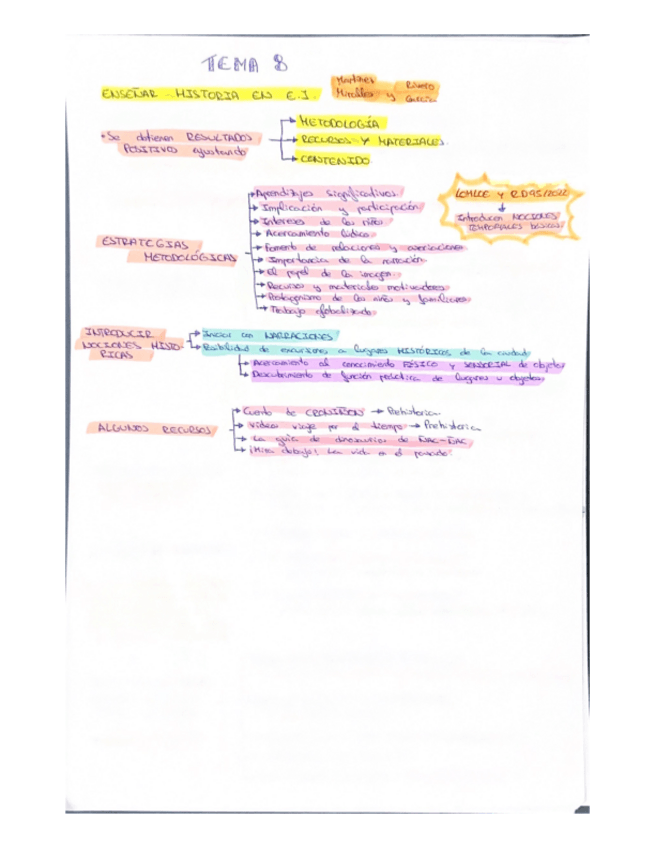 TEMA 8
ENSEÑAR HISTORIA EN E.I.
Rivero
Miralles y García
+ Se obtienen RESULTADOS
POSITIVOS ajustando
METODOLOGÍA
RECURSOS Y MATERIALES.
CONTENIDO
ESTRATEGIAS
METODOLÓGICAS
Aprendizajes significativos.
Implicación y participación.
Intereses de los niños.
Acercamiento lúdico.
Fomento de relaciones y
Importancia de la narración.
El papel de la imagen.
Recursos y materiales motivadores.
Protagonismo de los niños y familiares.
Trabajo globalizado.
LOMLOE y R.D 95/2022
Introducen NOCIONES
TEMPORALES básicas.
INTRODUCIR
NOCIONES HISTÓ-
RICAS
Iniciar con NARRACIONES
Posibilidad de excursiones a lugares HISTÓRICOS de la ciudad
Acercamiento al conocimiento FÍSICO y SENSORIAL de objetos
Descubrimiento de función práctica de lugares u objetos
ALGUNOS RECURSOS
Cuento de CROMIÑON → Prehistoria
Vídeo: viaje por el tiempo → Prehistoria
La guía de dinosaurios de ÑAC-ÑAC
¡Mira debajo! La vida en el pasado.